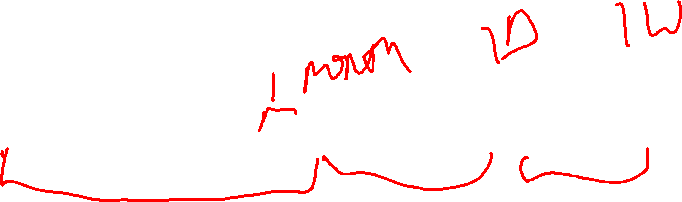 1 month 1D 1W